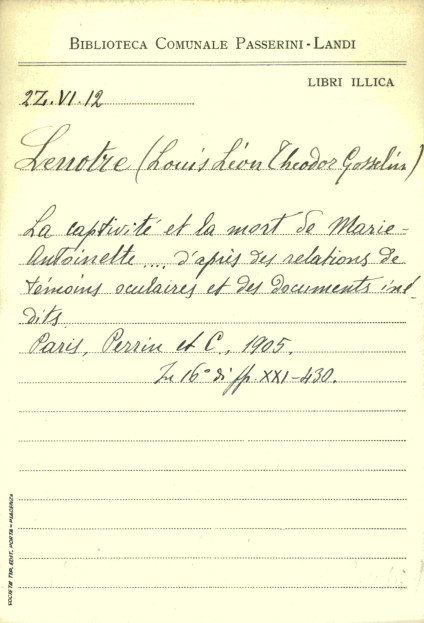 BIBLIOTECA COMUNALE PASSERINI-LANDI
LIBRI ILLICA
2Z.VI.12
Lenotre (Louis Léon Theodor Gosselin)
La captivité et la mort de Marie-
Antoinette .... d'après des relations de
témoins oculaires et des documents iné-
dits
Paris, Perrin et C., 1905.
In 16° di pp. XXI-430.
SOCIETÀ TIP. EDIT. PORTA - PIACENZA